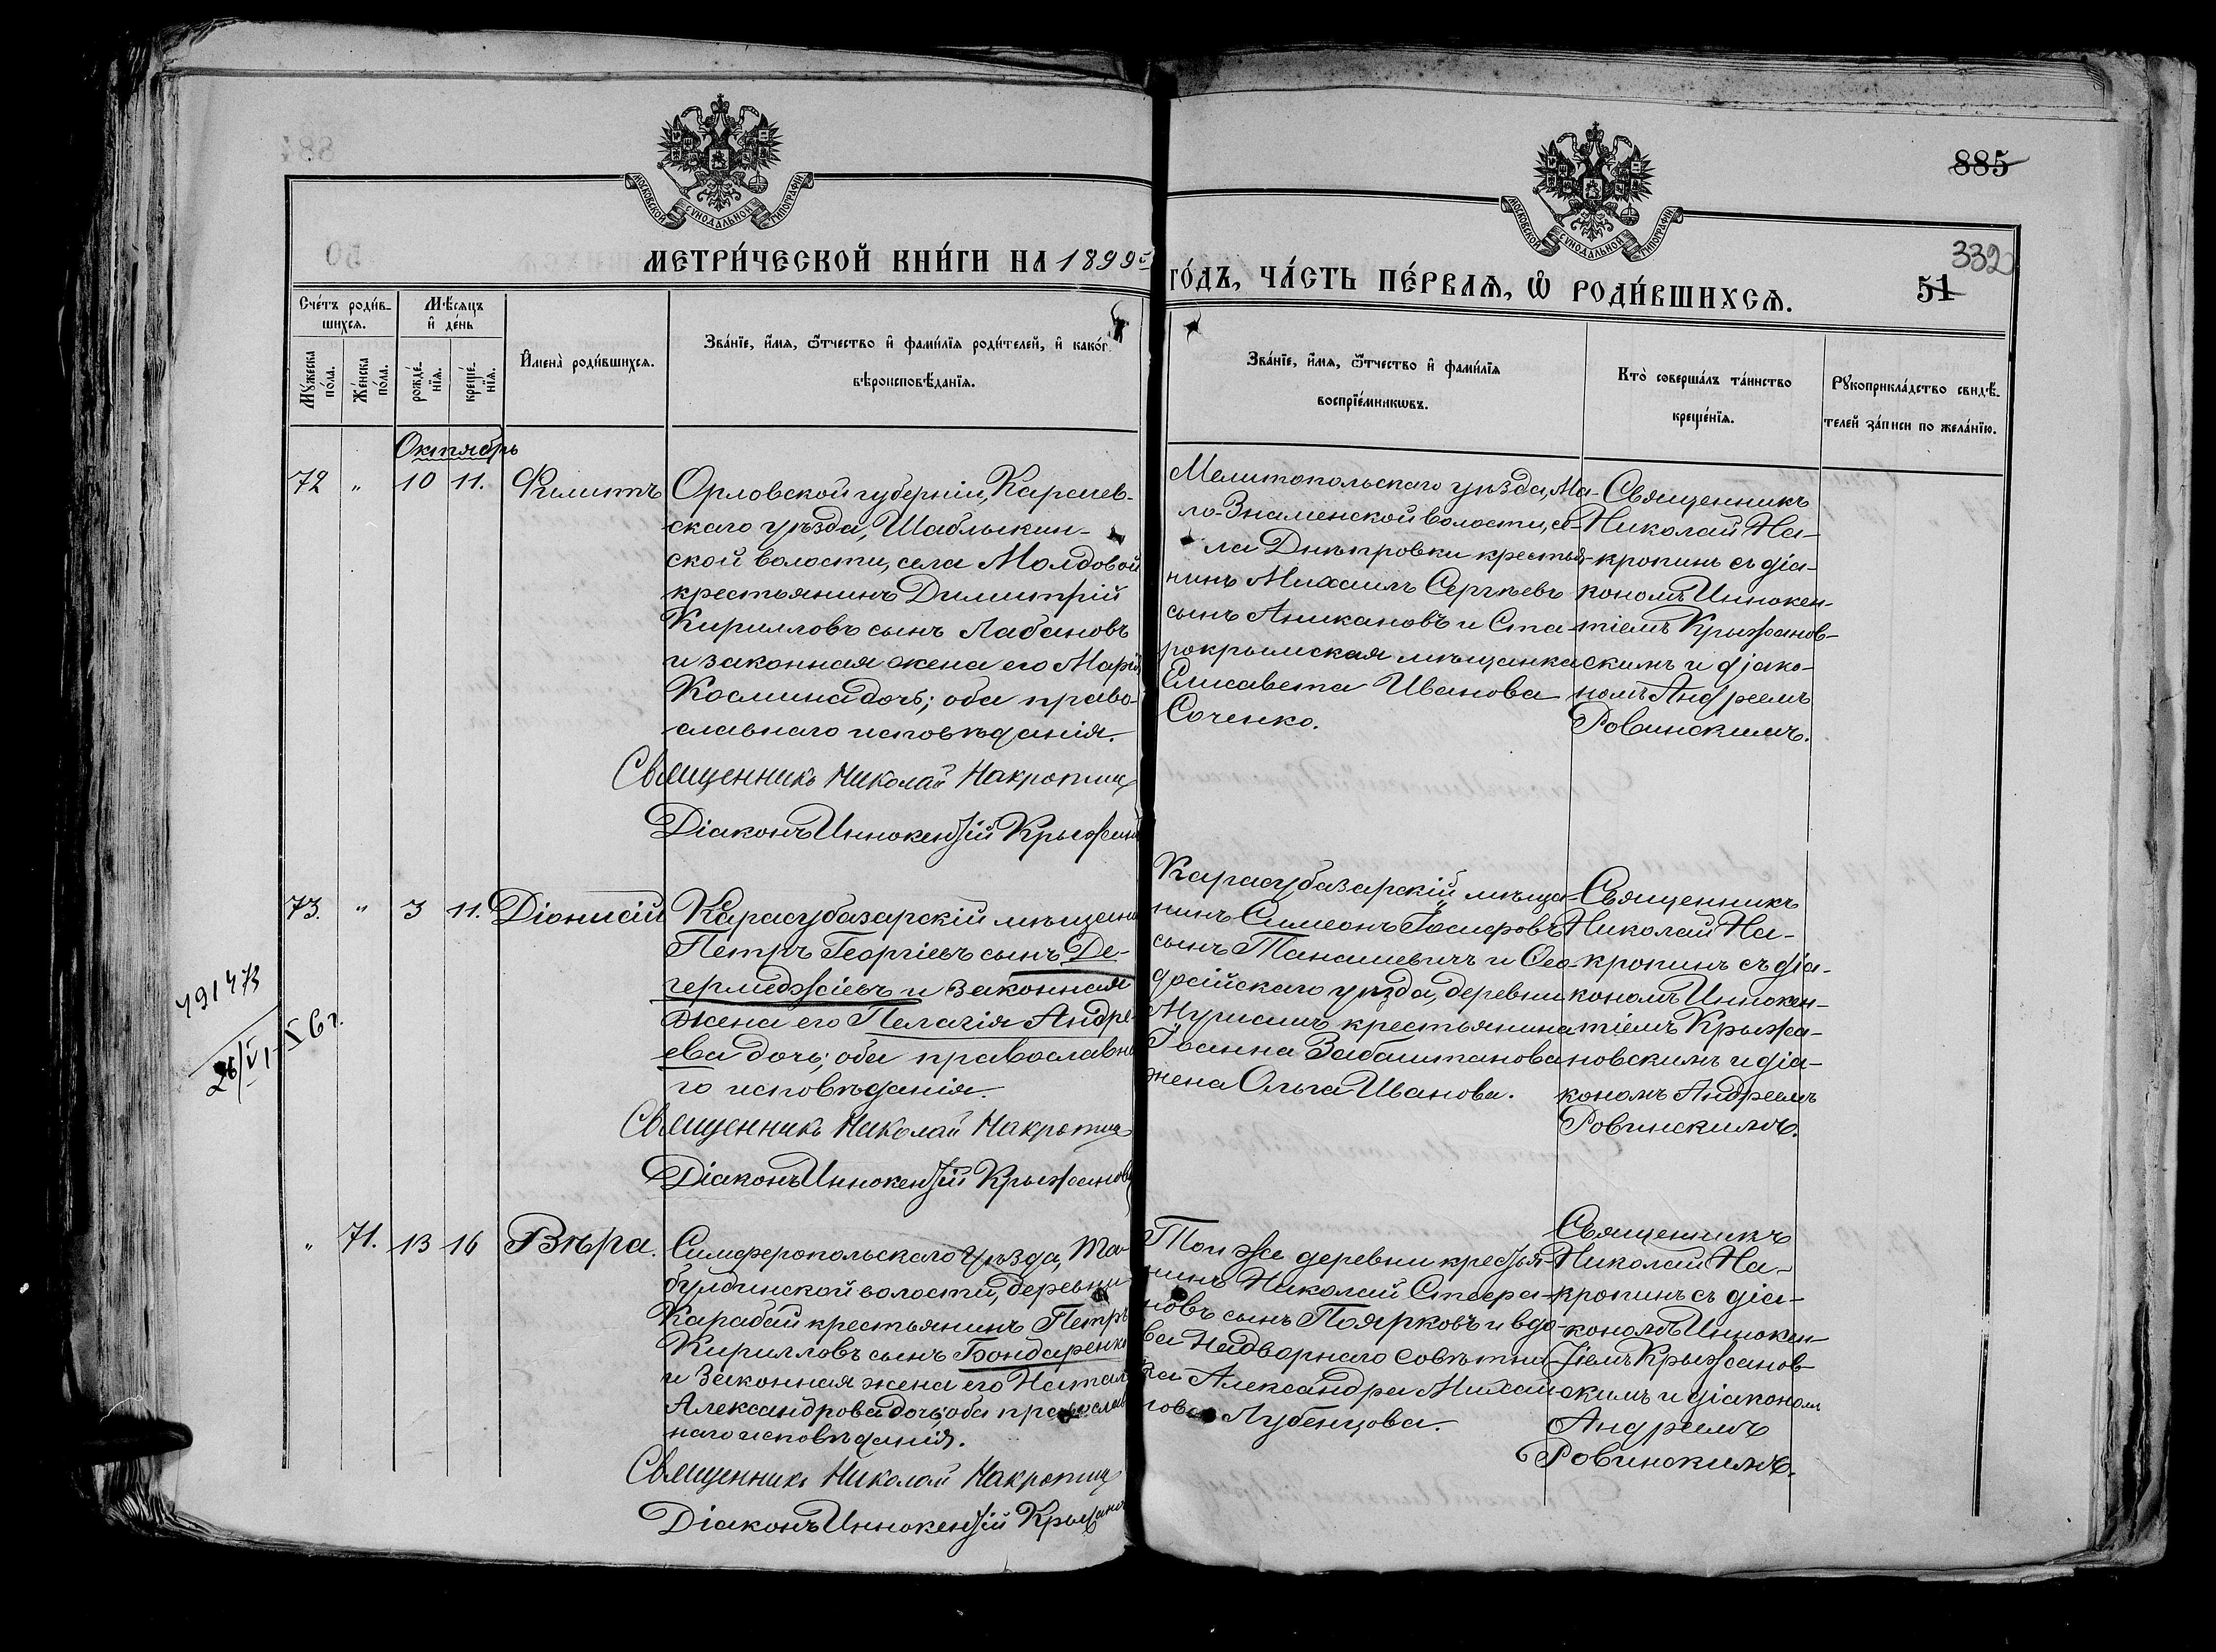 885
332
51
МОСКОВСКОЙ СУНОДАЛЬНОЙ ТИПОГРАФІИ
МОСКОВСКОЙ СУНОДАЛЬНОЙ ТИПОГРАФІИ
МЕТРИ́ЧЕСКОЙ КНИ́ГИ НА 1899й
ГО́ДЪ, ЧА́СТЬ ПЕ́РВАЯ, Ѡ҆ РОДИ́ВШИХСѦ.
Сче́тъ роди́в-
шихсѧ.
Мѣ́сяцъ
и҆ де́нь
Мꙋ́жеска
по́ла.
Же́нска
по́ла.
рожде́-
нїѧ.
креще́-
нїѧ.
И҆мена̀ роди́вшихсѧ.
Зва́нїе, и҆́мѧ, ѻ҆́тчество и҆ фами́лїѧ роди́телей, и҆ како́г
вѣроисповѣ́данїѧ.
Зва́нїе, и҆́мѧ, ѻ҆́тчество и҆ фами́лїѧ
воспрїе́мникѡвъ.
Кто̀ соверша́лъ та́инство
креще́нїѧ.
Рꙋкоприкла́дство свидѣ́-
телей за́писи по жела́нїю.
Октябрь
72 " 10 11. Филиппъ
Орловской губерніи, Карачев-
скаго уѣзда, Шаблыкин-
ской волости, села Молдовой
крестьянинъ Димитрій
Кирилловъ сынъ Лабановъ
и законная жена его Марія
Космина дочь; оба право-
славнаго исповѣданія.
Священникъ Николай Накропин
Діаконъ Иннокентій Крыжан
Мелитопольскаго уѣзда, Ма-
ло-Знаменской волости, се-
ла Днѣпровки крестья-
нинъ Михаилъ Сергѣевъ
сынъ Аникановъ и Ста-
рокрымская мѣщанка
Елисавета Иванова
Соченко.
Священникъ
Николай На-
кропинъ съ діа-
кономъ Иннокен-
тіемъ Крыжанов-
скимъ и діако-
номъ Андреемъ
Ровинскимъ.
73. " 3 11. Діонисій
Карасубазарскій мѣщани
Петръ Георгіевъ сынъ Де-
герменджіевъ и законная
жена его Пелагія Андре-
ева дочь; оба православна
го исповѣданія.
Священникъ Николай Накропин
Діаконъ Иннокентій Крыжанов
Карасубазарскій мѣща-
нинъ Симеонъ Іосифовъ
сынъ Танашевичъ и Ѳео-
досійскаго уѣзда, деревни
крестьянина
Іоанна Забаштанова
жена Ольга Иванова.
Священникъ
Николай На-
кропинъ съ діа-
кономъ Иннокен-
тіемъ Крыжа-
новскимъ и діа-
кономъ Андреемъ
Ровинскимъ.
" 71. 13 16 Вѣра.
Симферопольскаго уѣзда, Та-
булдинской волости, деревни
Карабай крестьянинъ Петръ
Кирилловъ сынъ Бондаренко
и законная жена его Натал
Александрова дочь; оба православ
наго исповѣданія.
Священникъ Николай Накропин
Діаконъ Иннокентій Крыжано
Той же деревни крестья-
нинъ Николай Стефа-
новъ сынъ Поярковъ и вдо-
ва Надворнаго совѣтни
ка Александра Михай-
лова Лубенцова.
Священникъ
Николай На-
кропинъ съ діа-
кономъ Иннокен
тіемъ Крыжанов-
скимъ и діакономъ
Андреемъ
Ровинскимъ.